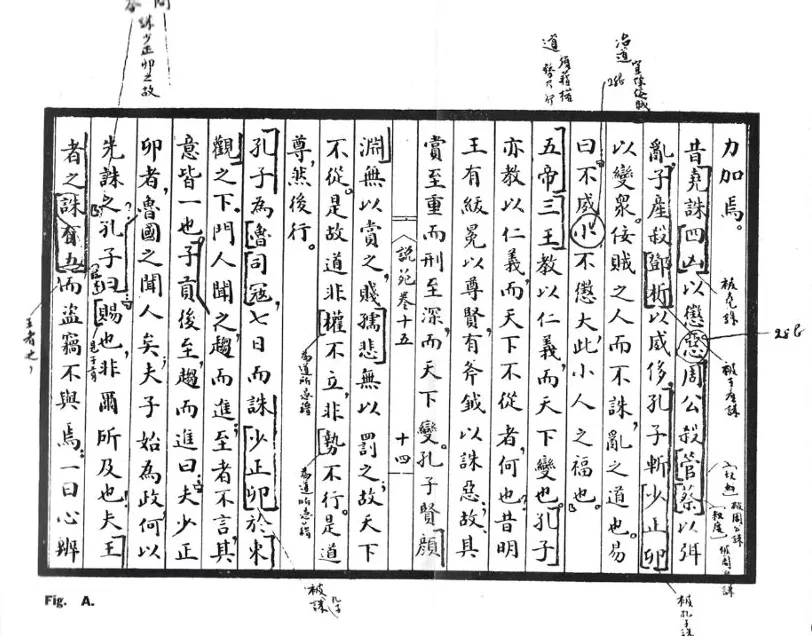 治道
道
誅少正卯之故
力加焉。
昔堯誅四凶以懲惡。周公殺管蔡以弭
亂，子產殺鄧析以威侈，孔子斬少正卯
以變衆。佞賊之人而不誅，亂之道也。易
曰不威小不懲大，此小人之福也。
五帝三王教以仁義而天下變也，孔子
亦教以仁義，而天下不從者，何也？昔明
王有紱冕以尊賢，有斧鉞以誅惡，故其
賞至重而刑至深，而天下變。孔子賢顏
說苑卷十五 十四
淵無以賞之，賤孺悲無以罰之，故天下
不從。是故道非權不立，非勢不行。是道
尊，然後行。
孔子為魯司寇，七日而誅少正卯於東
觀之下。門人聞之，趨而進，至者不言，其
意皆一也。子貢後至，趨而進曰夫少正
卯者，魯國之聞人矣，夫子始為政，何以
先誅之？孔子曰賜也，非爾所及也。夫王
者之誅有五，而盜竊不與焉。一曰心辨
被堯誅
被子產誅
被孔子誅
王者之
Fig. A.